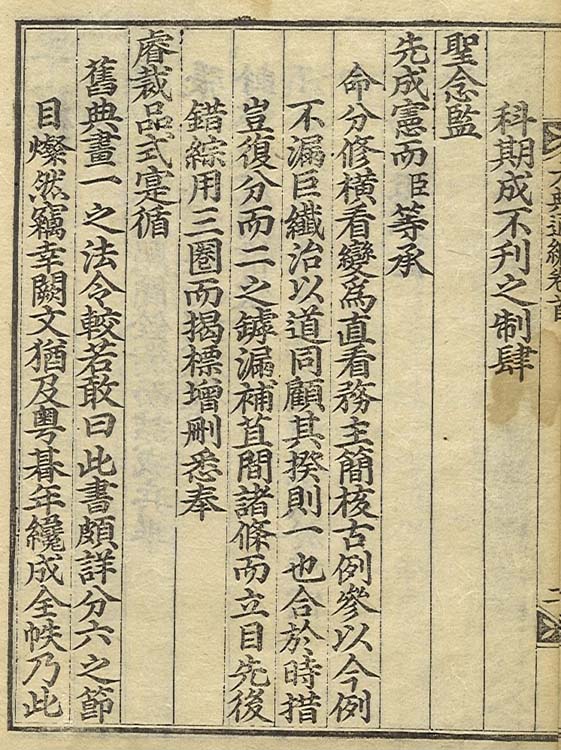 大典通編卷首
二
科期成不刊之制肆
聖念監
先成憲而臣等承
命分修橫看變為直看務主簡核古例參以今例
不漏巨纖治以道同顧其揆則一也合於時措
豈復分而二之罅漏補苴間諸條而立目先後
錯綜用三圈而揭標增刪悉奉
睿裁品式寔循
舊典畫一之法令較若敢曰此書頗詳分六之節
目燦然竊幸闕文猶及粤朞年纔成全帙乃此